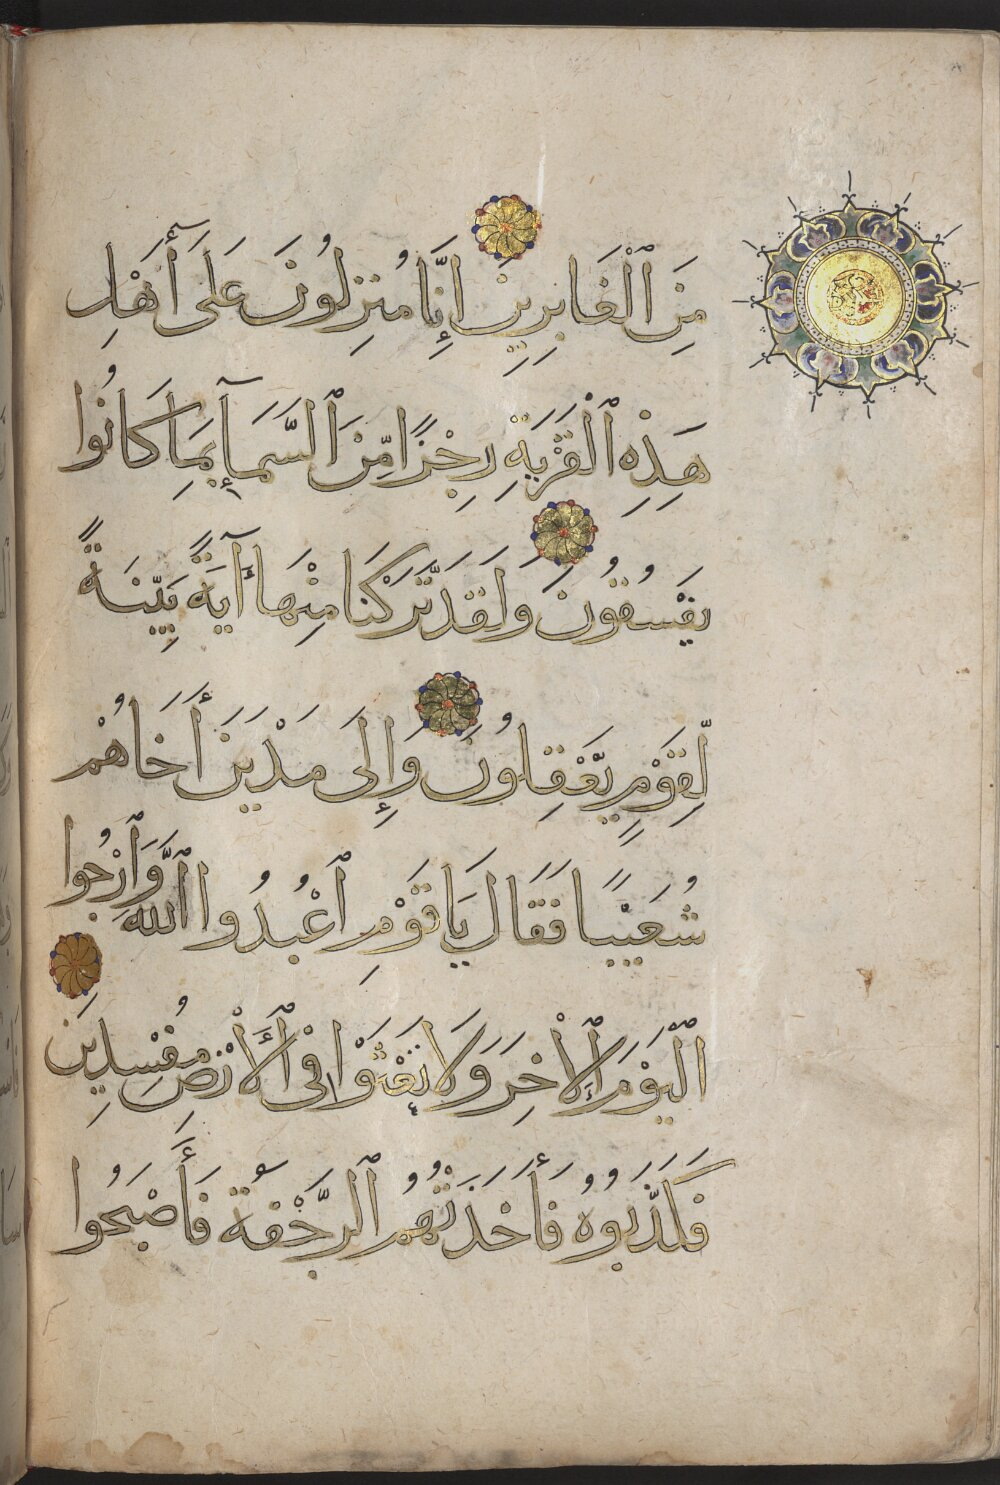 مِنَ ٱلْغَابِرِينَ إِنَّا مُنزِلُونَ عَلَىٰٓ أَهْلِ
هَذِهِ ٱلْقَرْيَةِ رِجْزًا مِّنَ ٱلسَّمَآءِ بِمَا كَانُوا
يَفْسُقُونَ وَلَقَد تَّرَكْنَا مِنْهَا آيَةً بَيِّنَةً
لِّقَوْمٍ يَعْقِلُونَ وَإِلَى مَدْيَنَ أَخَاهُمْ
شُعَيْبًا فَقَالَ يَا قَوْمِ ٱعْبُدُوا ٱللَّهَ وَٱرْجُوا
ٱلْيَوْمَ ٱلْأٓخِرَ وَلَا تَعْثَوْا فِي ٱلْأَرْضِ مُفْسِدِينَ
فَكَذَّبُوهُ فَأَخَذَتْهُمُ ٱلرَّجْفَةُ فَأَصْبَحُوا